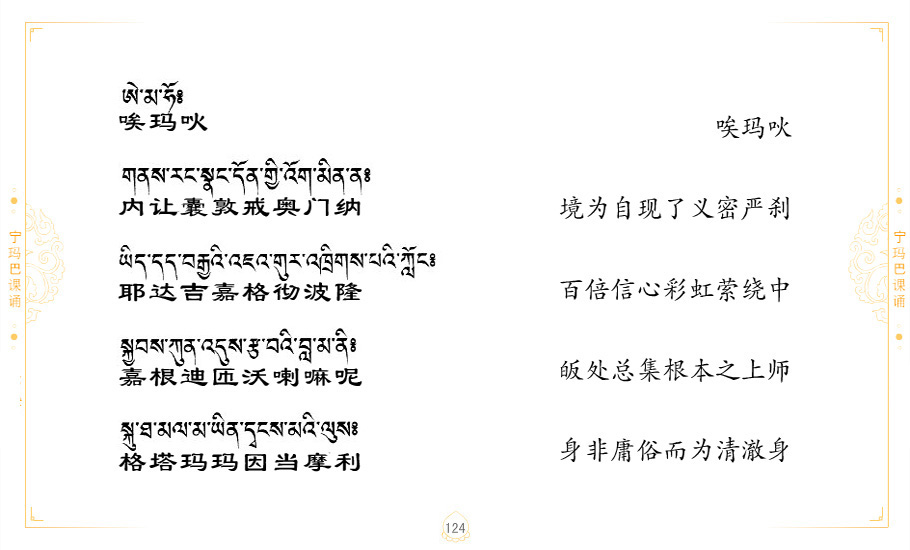 ཨེ་མ་ཧོ༔
唉玛吙
唉玛吙
གནས་རང་སྣང་དོན་གྱི་འོག་མིན་ན༔
内让囊敦戒奥门纳
境为自现了义密严刹
ཡིད་དད་བརྒྱའི་འཇའ་གུར་འཁྲིགས་པའི་ཀློང༔
耶达吉嘉格彻波隆
百倍信心彩虹萦绕中
སྐྱབས་ཀུན་འདུས་རྩ་བའི་བླ་མ་ནི༔
嘉根迪匝沃喇嘛呢
皈处总集根本之上师
སྐུ་ཐ་མལ་མ་ཡིན་དྭངས་མའི་ལུས༔
格塔玛玛因当摩利
身非庸俗而为清澈身
宁玛巴课诵
宁玛巴课诵
124